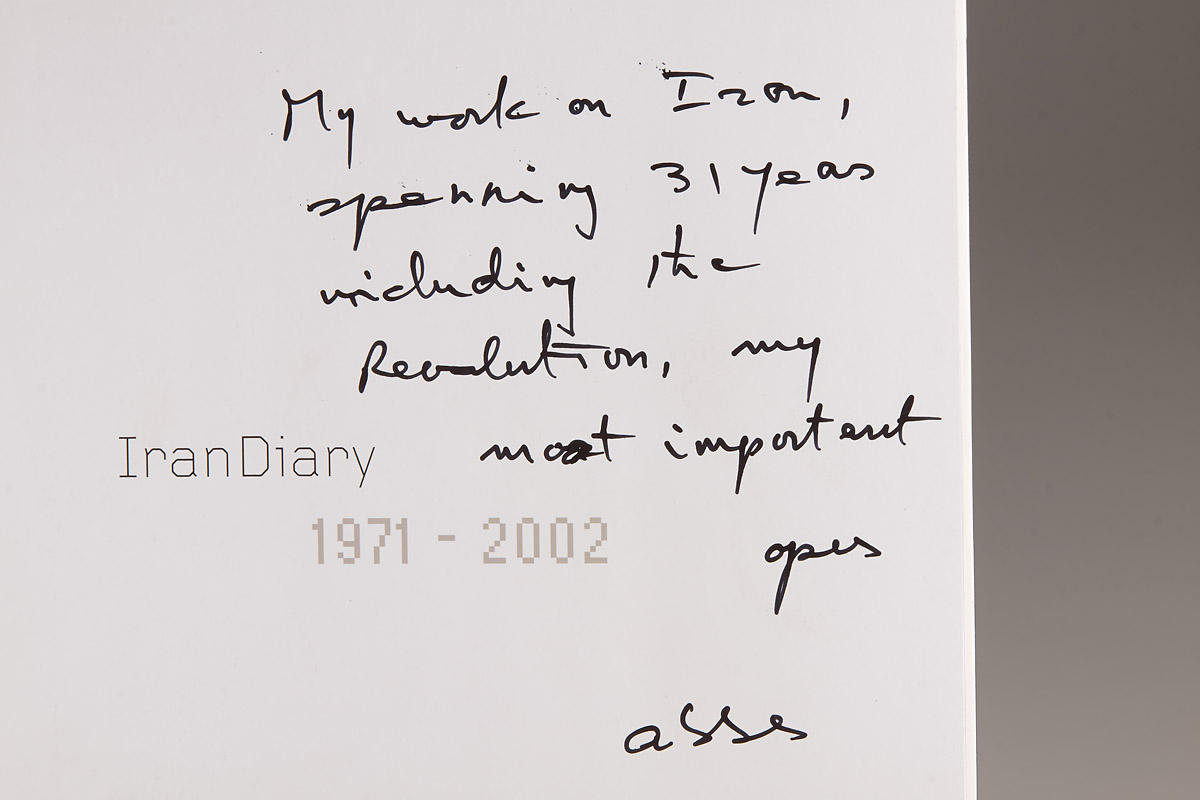 My work on Iran,
spanning 31 years
including the
Revolution, my
most important
opus
IranDiary
1971 - 2002
abbas